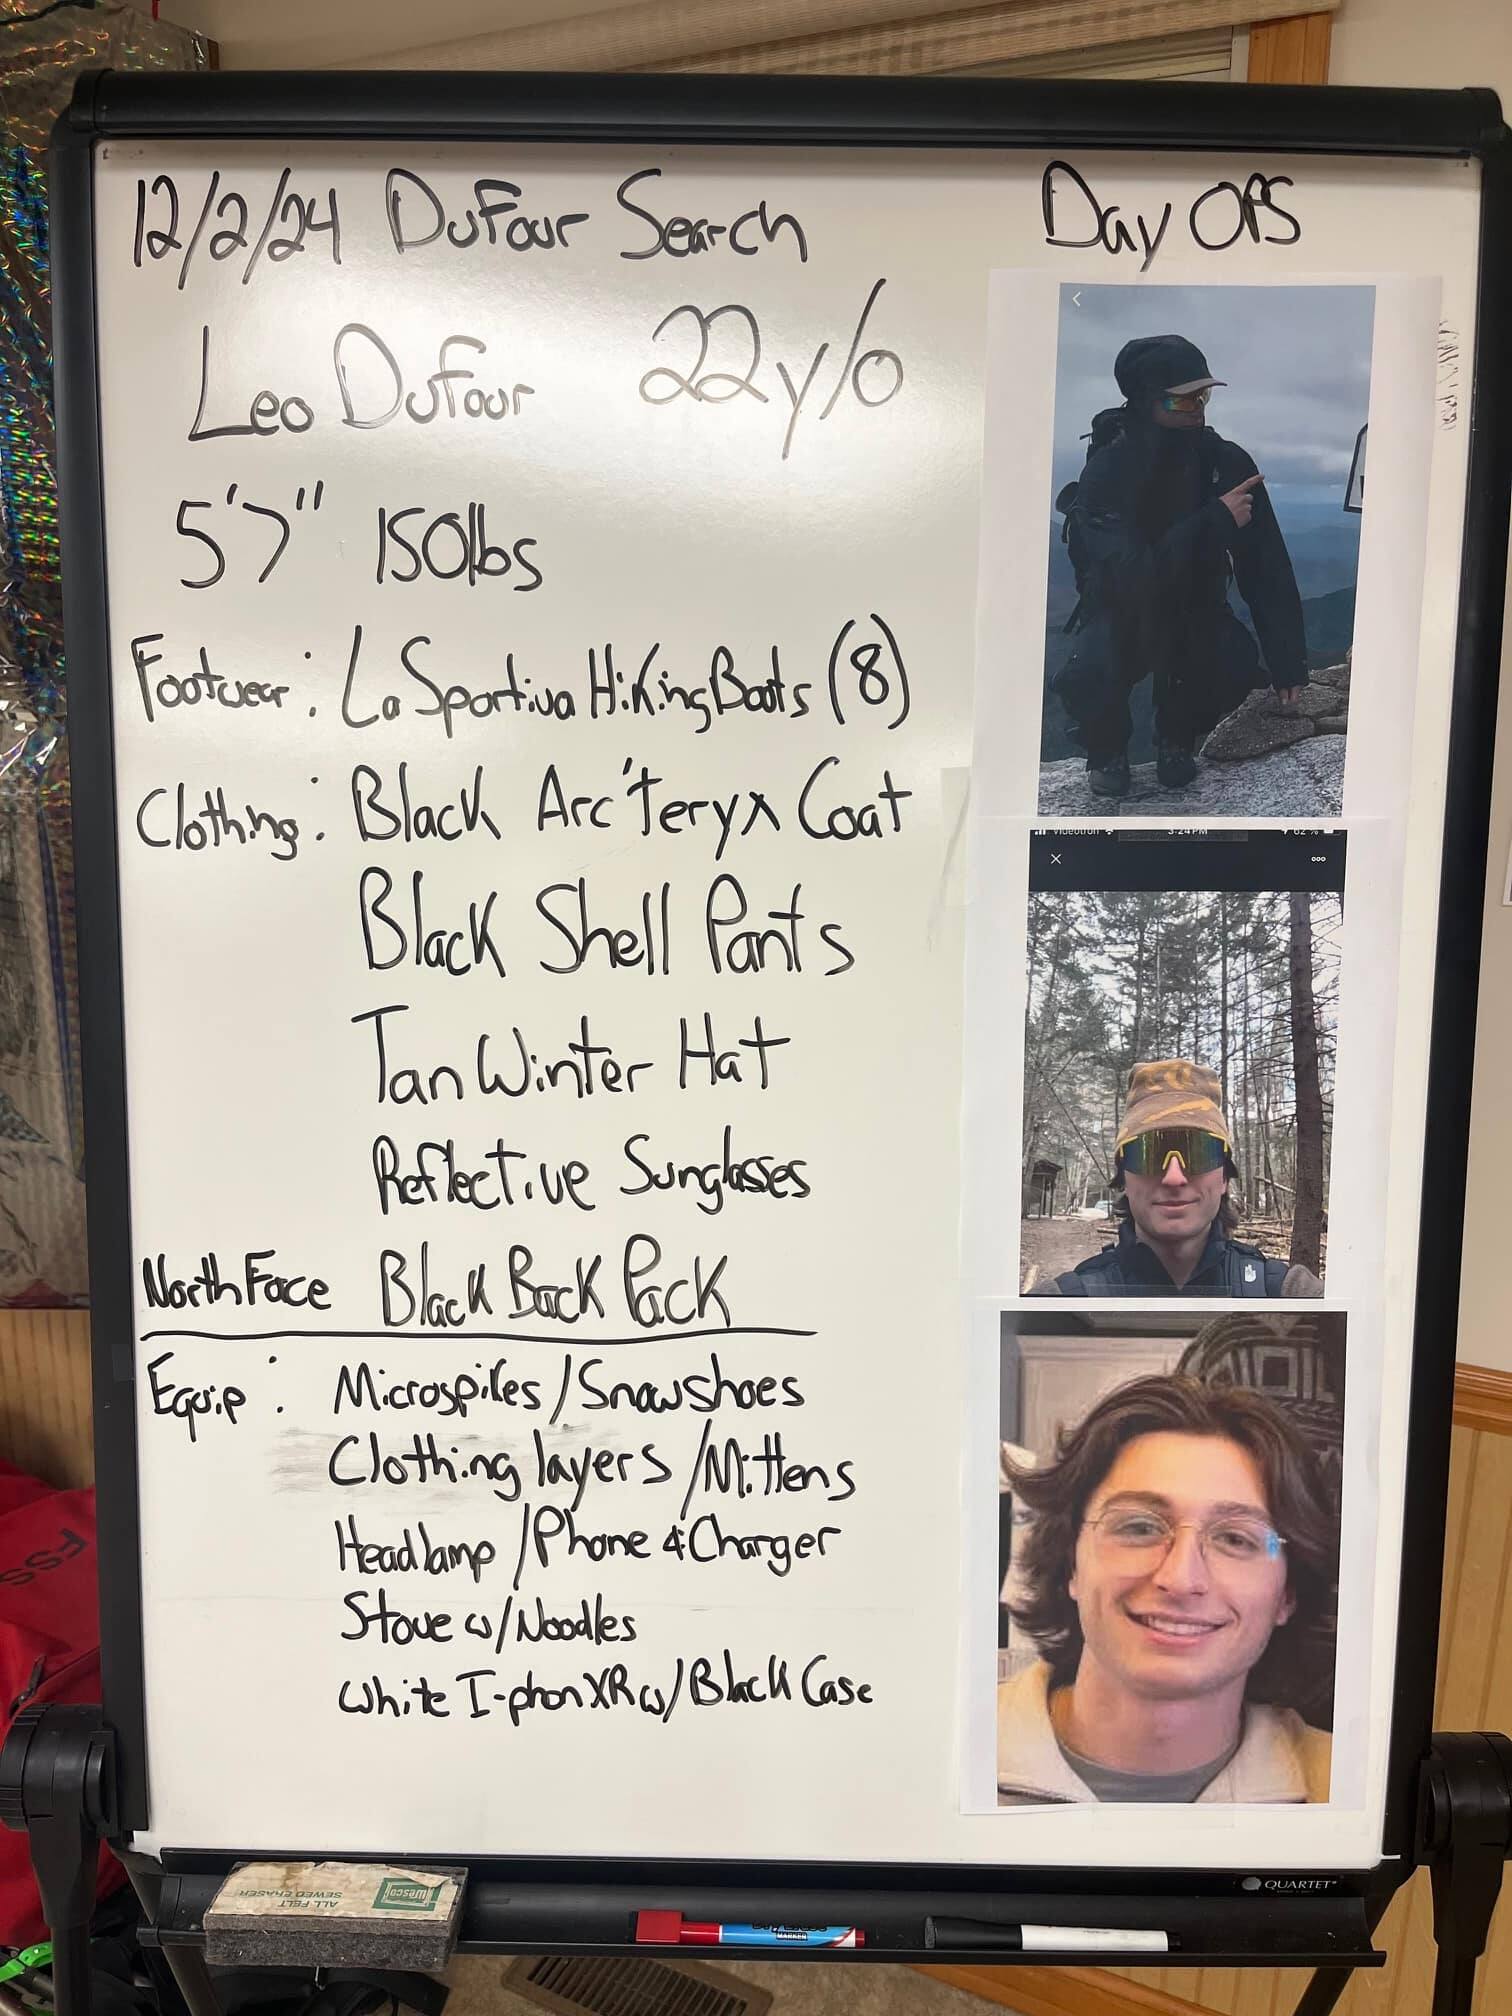 12/2/24 DuFour Search
Day OPS
Leo DuFour 22 y/o
5'7" 150lbs
Footwear: La Sportiva Hiking Boots (8)
Clothing: Black Arc'teryx Coat
Black Shell Pants
Tan Winter Hat
Reflective Sunglasses
North Face Black Back Pack
Equip: Microspikes/Snowshoes
Clothing layers/Mittens
Headlamp/Phone & Charger
Stove w/Noodles
White I-phon XR w/Black Case
videotron 3:24 PM 62 %
QUARTET
Wesco
ALL FELT
SEWED ERASER
MARKER
FSS